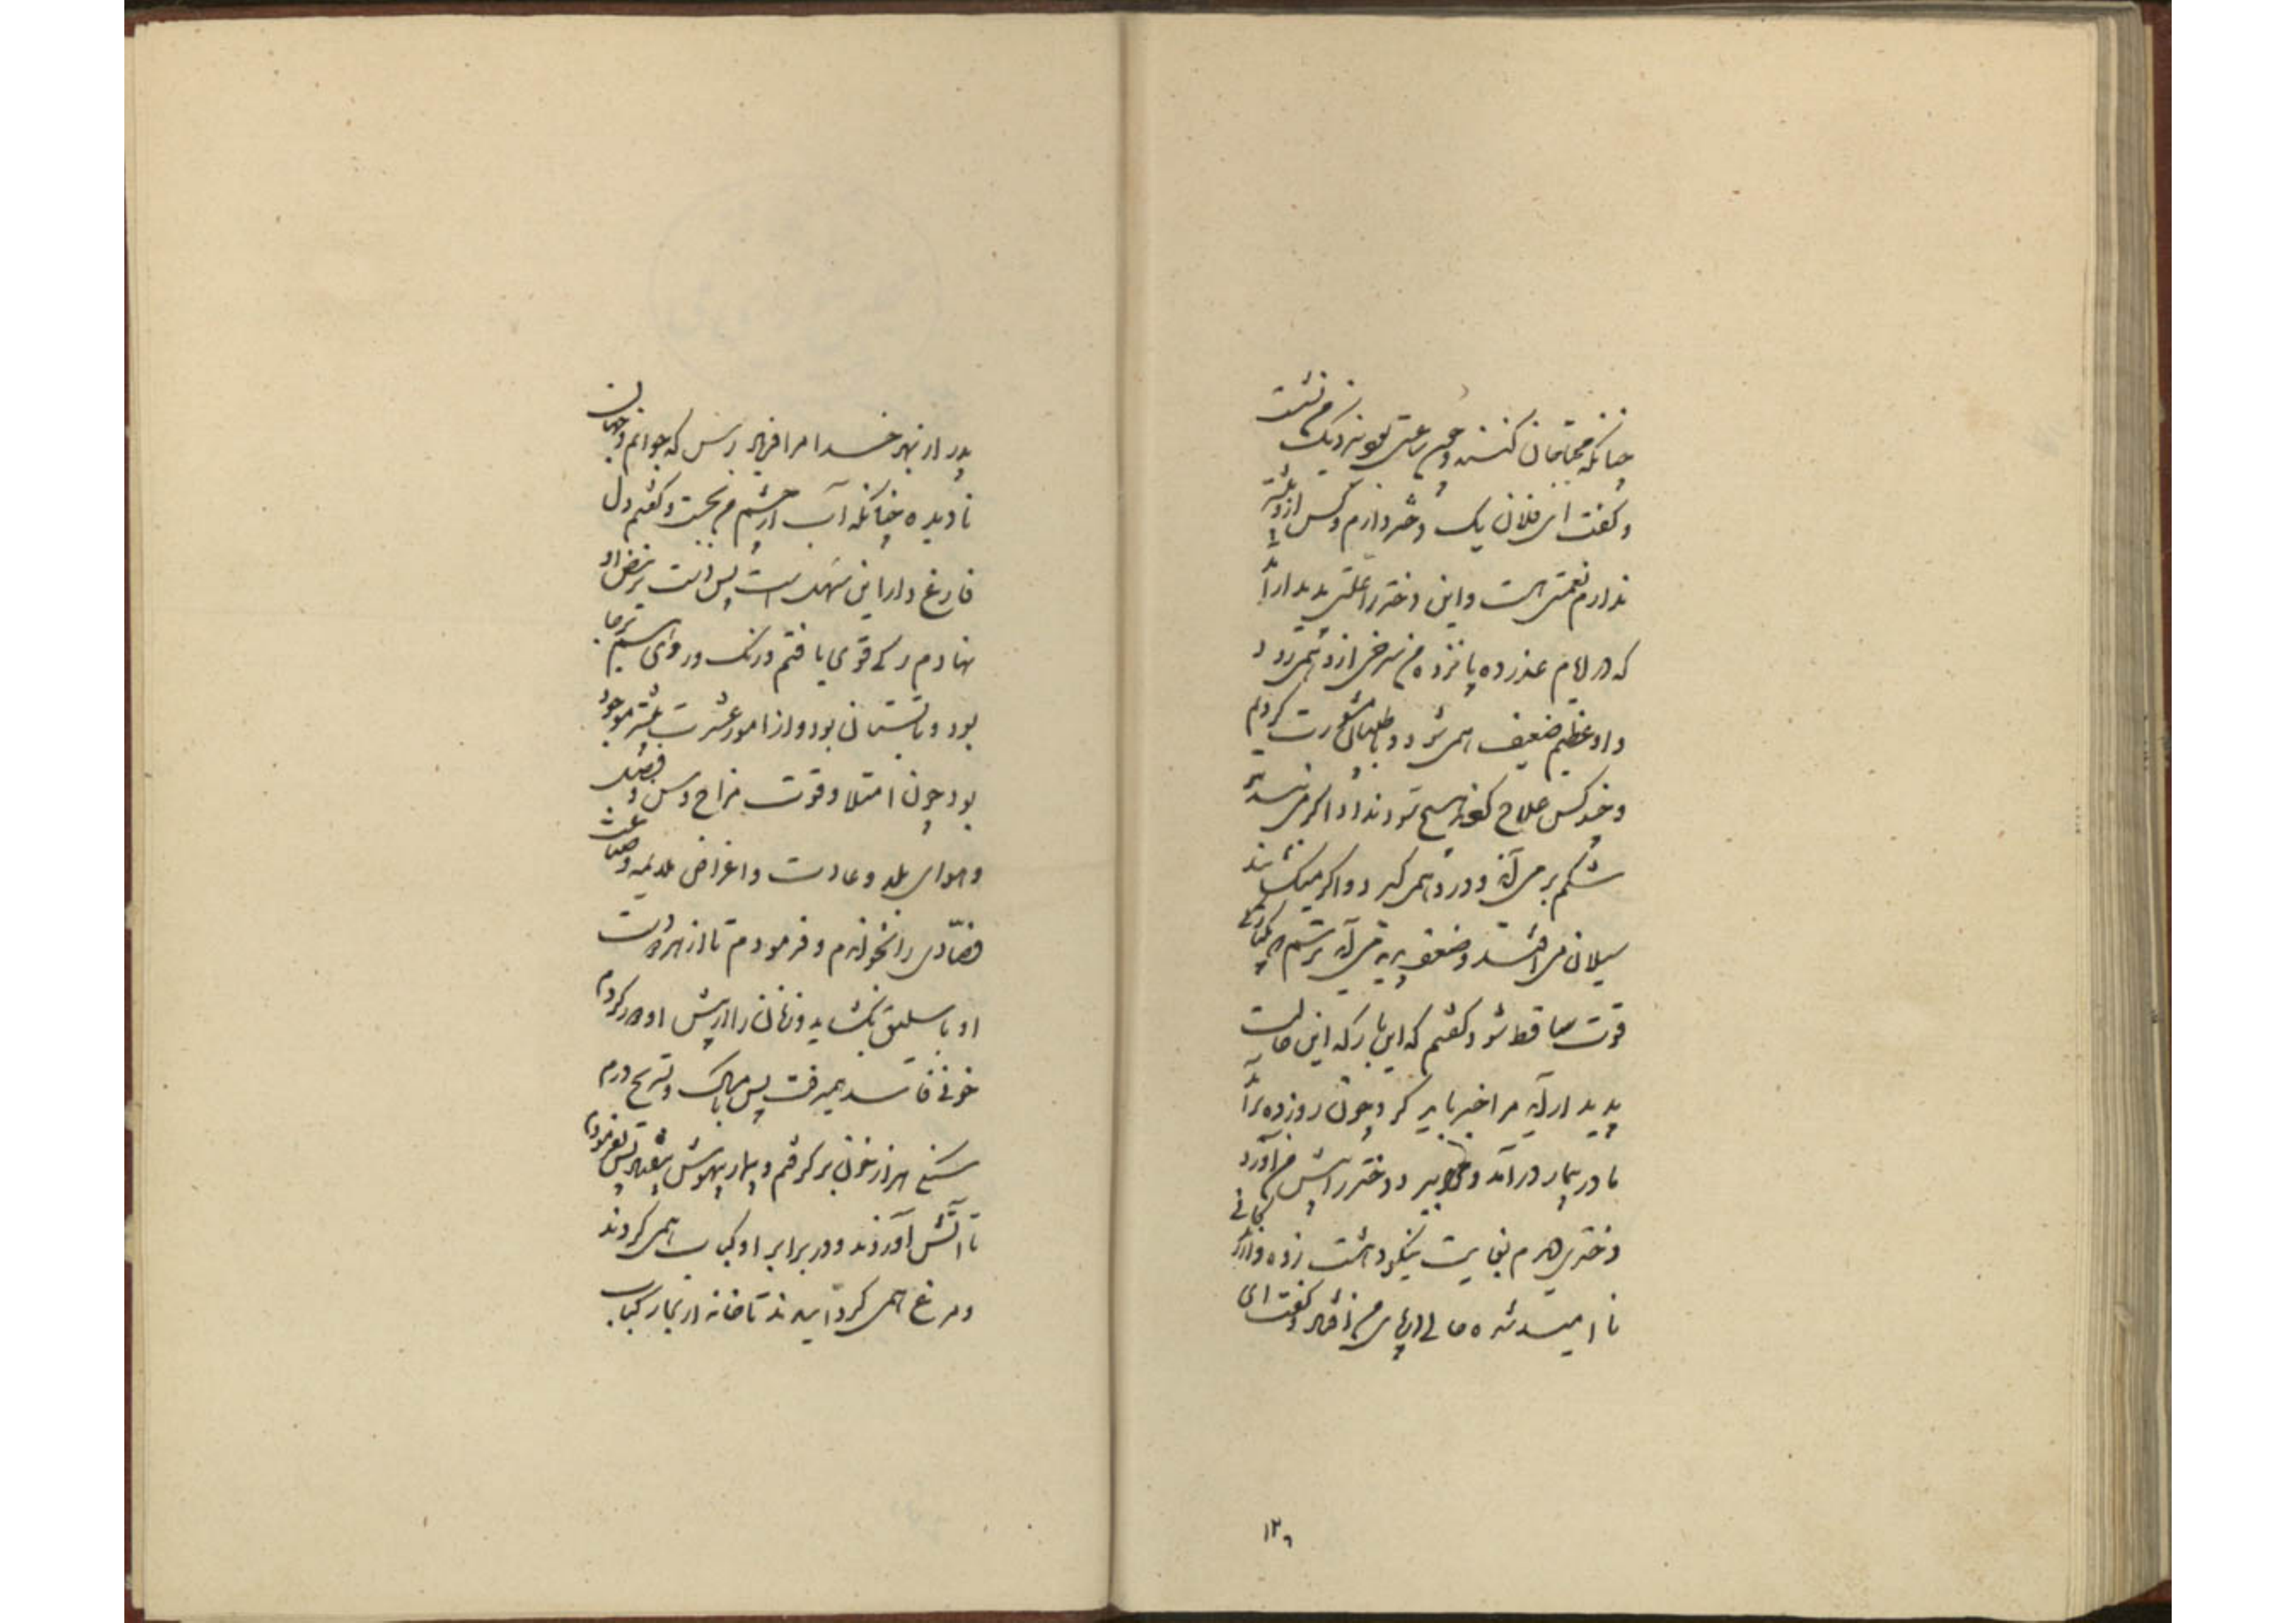 چنانکه محتاجان کنند و چون رعیتی بود نزدیک من نشست
و گفت ای فلان یک دختر دارم و کس از و بیشتر
ندارم نعمتی هست و این دختر را علتی پدیدار آمد
که در ایام عذر ده پانزده من سرخی از و همی رود
و او عظیم ضعیف همی شود و با طبیبان مشورت کردیم
و چند کس علاج کردند هیچ سود نداد اگر می بندند
شکم بر می آید و درد همی گیرد و اگر میگشایند
سیلان می افتد و ضعف پدید می آید ترسم که یکبارگی
قوت ساقط شود گفتم که این بار که این حالت
پدیدار آید مرا خبر باید کرد چون روز ده بر آمد
مادر بیمار در آمد و مرا ببرد و دختر را پیش من آورد
دختری دیدم بغایت نیکو دهشت زده و از زندگانی
ناامید شده حالی در پای من افتاد و گفت ای
پدر از بهر خدا مرا فریاد رس که جوانم و جهان
نادیده چنانکه آب از چشم من بجست و گفتم دل
فارغ دار این سهل است پس دست بر نبض او
نهادم رگی قوی یافتم و رنگ و روی هم بر جا
بود و تابستانی بود و از امور عشرت بیشتر موجود
بود چون امتلا و قوت مزاج و سن و فصل
و هوای بلد و عادت و اغراض ملایمه و صناعت
فصادی را بخواندم و فرمودم تا از هر دو دست
او باسلیق بگشاید و زنان را از پیش او دور کردم
خونی فاسد همیرفت پس بامساک و تسریح درم
سنگی هزار خون بر گرفتم و بیمار بیهوش بیفتاد پس بفرمودم
تا آتش آوردند و در برابر او کباب همی کردند
و مرغ همی گردانیدند تا خانه از بخار کباب
۱۲۶